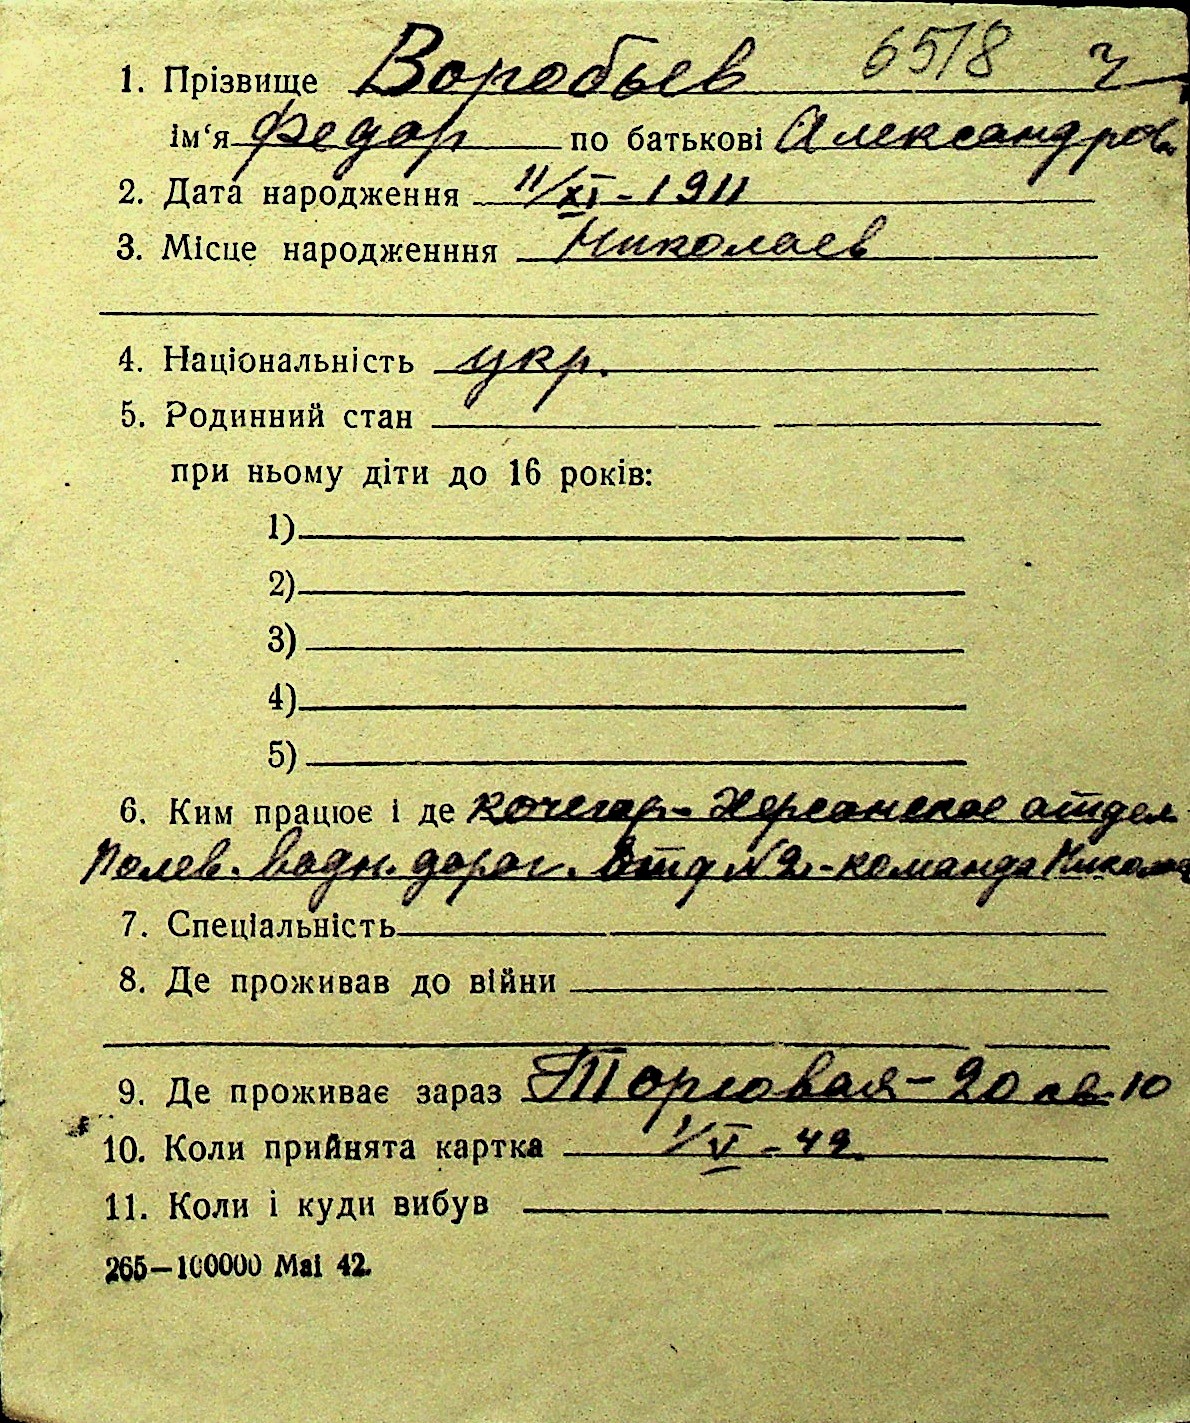 1. Прізвище Воробьев 6518
ім‘я Федор по батькові Александров
2. Дата народження 11/XI - 1911
3. Місце народженння Николаев
4. Національність укр.
5. Родинний стан
при ньому діти до 16 років:
1)
2)
3)
4)
5)
6. Ким працює і де кочегар - Херсонское отдел
водн. дорог. Отд №2 - команда Никола
7. Спеціальність
8. Де проживав до війни
9. Де проживає зараз Торговая - 20 кв. 10
10. Коли прийнята картка 1/V - 42.
11. Коли і куди вибув
265—100000 Маі 42.